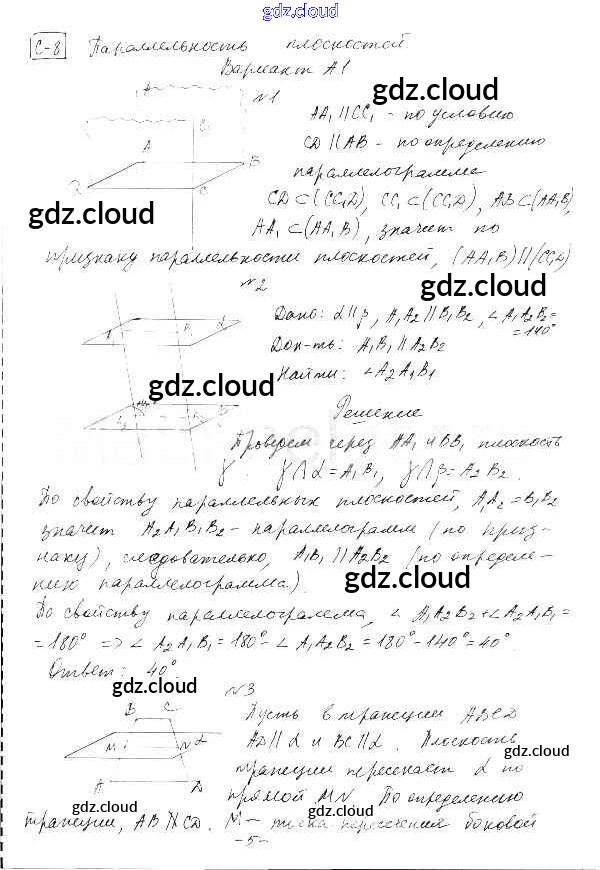 gdz.cloud
С-8 Параллельность плоскостей
Вариант А1
gdz.cloud
№1
AA₁ ∥ CC₁ - по условию
gdz.cloud
CD ∥ AB - по определению
параллелограмма
CD ⊂ (CC₁D), CC₁ ⊂ (CC₁D), AB ⊂ (AA₁B),
gdz.cloud
gdz.cloud
AA₁ ⊂ (AA₁B), значит по
признаку параллельности плоскостей, (AA₁B) ∥ (CC₁D)
№2
gdz.cloud
Дано: α ∥ β, A₁A₂ ∥ B₁B₂, ∠A₁A₂B₂ =
= 140°
Док-ть: A₁B₁ ∥ A₂B₂
gdz.cloud
Найти: ∠A₂A₁B₁
Решение
Проведем через AA₁ и BB₁ плоскость
γ. γ ∩ α = A₁B₁, γ ∩ β = A₂B₂.
По свойству параллельных плоскостей, A₁A₂ = B₁B₂
значит A₂A₁B₁B₂ - параллелограмм (по приз-
наку), следовательно, A₁B₁ ∥ A₂B₂ (по определе-
нию параллелограмма.)
gdz.cloud
По свойству параллелограмма, ∠A₁A₂B₂ + ∠A₂A₁B₁ =
= 180° => ∠A₂A₁B₁ = 180° - ∠A₁A₂B₂ = 180° - 140° = 40°.
Ответ: 40°
gdz.cloud
№3
B C
Пусть в трапеции ABCD
M N α
AD ∥ α и BC ∥ α. Плоскость
gdz.cloud
трапеции пересекает α по
A D
прямой MN. По определению
gdz.cloud
gdz.cloud
трапеции, AB ∦ CD. M - точка пересечения боковой
-5-
gdz.cloud